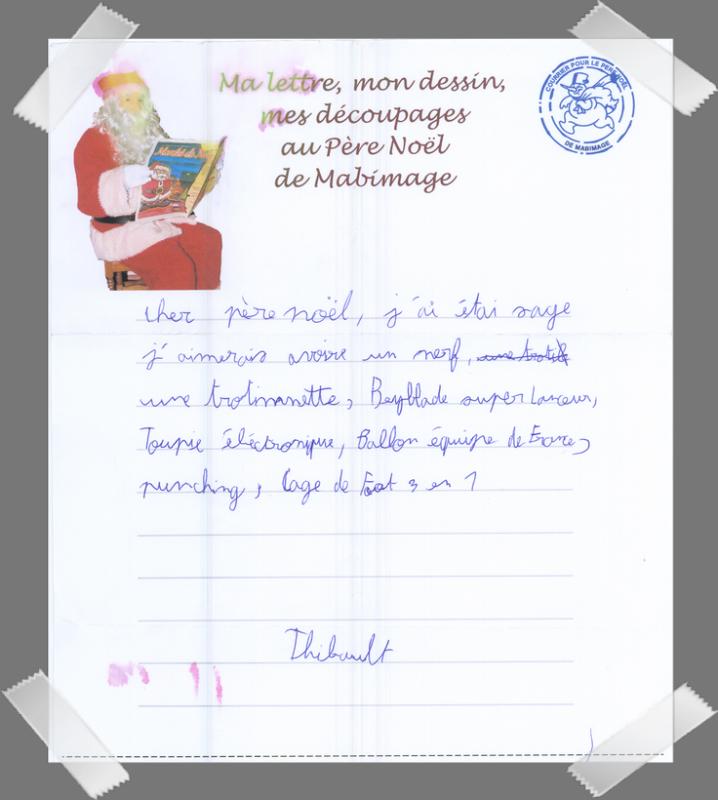 Ma lettre, mon dessin,
mes découpages
au Père Noël
de Mabimage
COURRIER POUR LE PERE NOËL
DE MABIMAGE
cher père noël, j'ai étai sage
j'aimerais avoire un nerf,
une trotinnette, Beyblade super lanceur,
Toupie éléctronique, Ballon équipe de France,
punching, Cage de Foot 3 en 1
Thibault